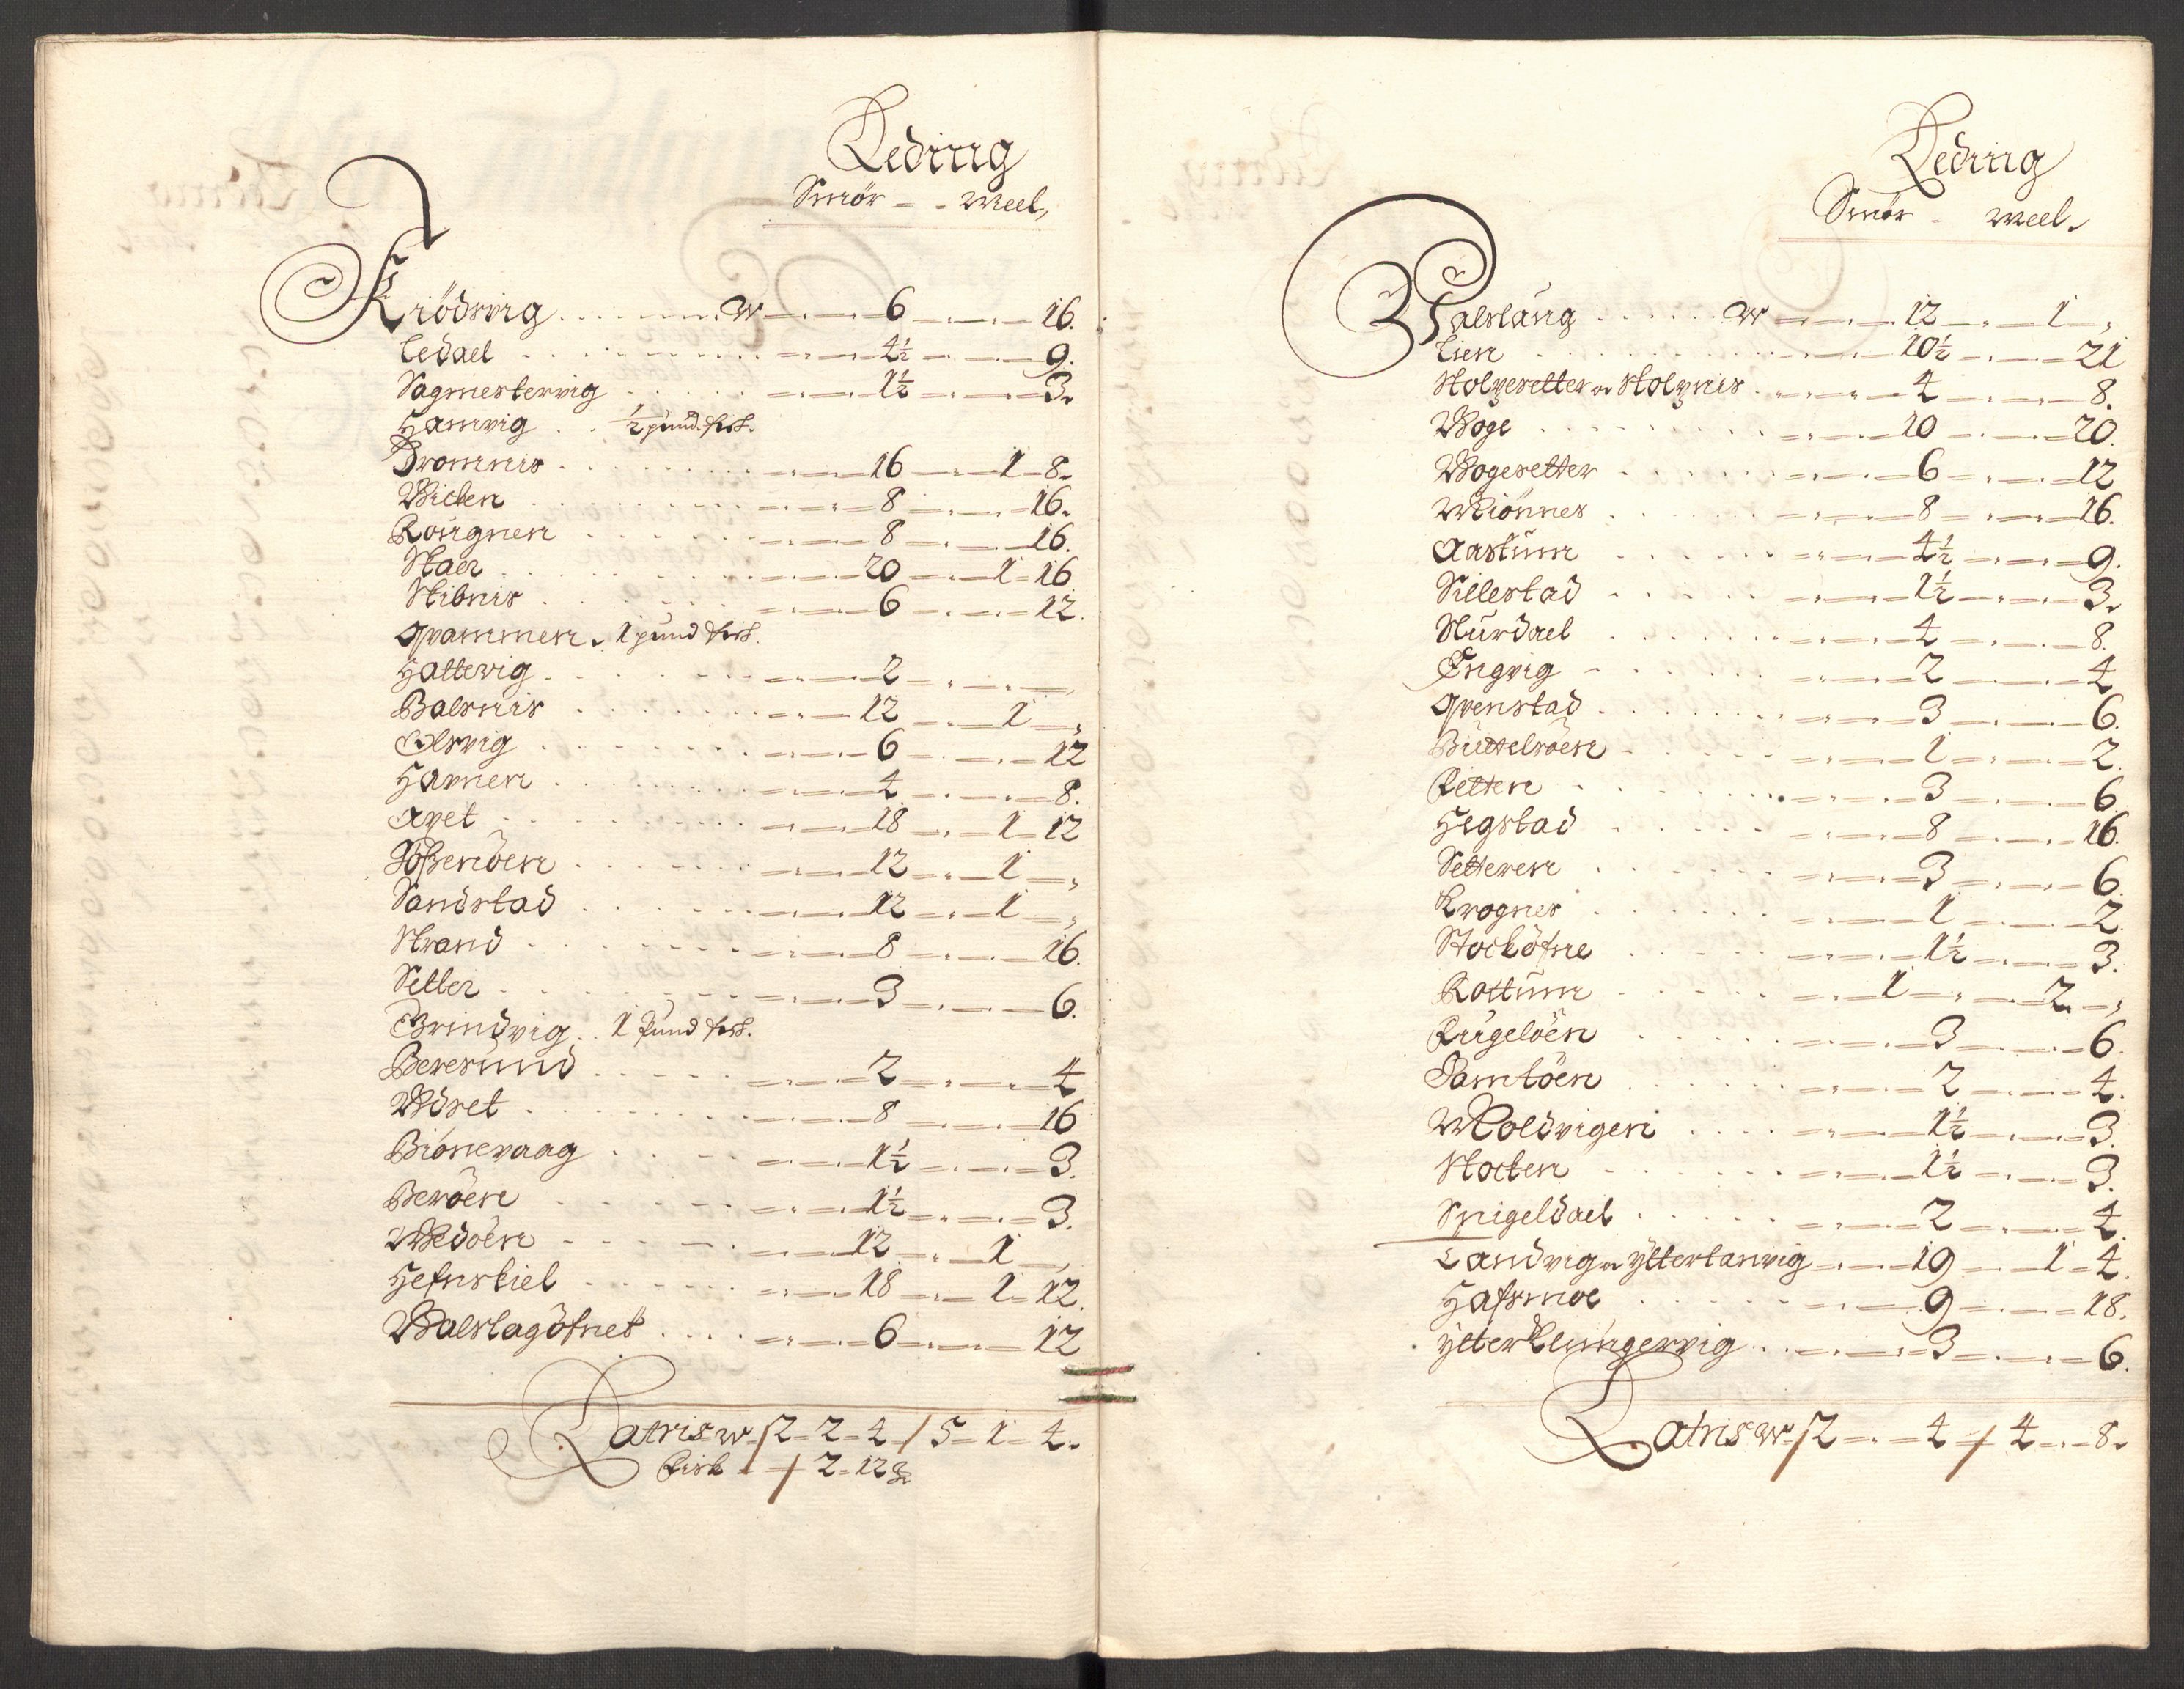 Leding
Smör - - Meel,
Kiödsvig . . . . . . W 6 16.
Ledael . . . 4½ 9.
Sagmestervig . . . 1½ 3.
Hamvig . . ½ pund fisk.
Dromnis . . . 16 1 - 8.
Wicken . . . 8 16.
Rougnen . . . 8 16.
Staer . . . 20 1 - 16
Stibnis . . . 6 12.
Qvammen . 1 pund fisk.
Hattevig . . . 2
Balsnis . . . 12 1 "
Olsvig . . . 6 12
Havnen . . . 4 8.
Avet . . . 18 1 - 12
Jössenöen . . . 12 1 "
Sandstad . . . 12 1 "
Strand . . . 8 16.
Setler . . . 3 6.
Grindvig . . 1 pund fisk.
Beresund . . . 2 4
Woret . . . 8 16
Biönevaag . . . 1½ 3.
Beröen . . . 1½ 3.
Wedöen . . . 12 1 "
Hefnskiel . . . 18 1 - 12.
Walslagöfnet . . . 6 12
Latris W / 2 - 2 - 4 / 5 - 1 - 4.
Fisk / 2 - 12
Leding
Smör - Meel.
Walslaug . . . . . W 12 1 "
Lien . . . 10½ 21
Stolpesetter Stolpnis . . . 4 8.
Woge . . . 10 20.
Wogesetter . . . 6 12
Miönnes . . . 8 16.
Aastum . . . 4½ 9.
Sillestad . . . 1½ 3.
Sturdael . . . 4 8.
Engvig . . . 2 4
Qvenstad . . . 3 6.
Büttelsöen . . . 1 2.
Retten . . . 3 6
Hegstad . . . 8 16.
Setteren . . . 3 6.
Krognes . . . 1 2
Stocköfne . . . 1½ 3.
Rottum . . . 1 2 "
Rugelöen . . . 3 6.
Tamlöen . . . 2 4.
Woldvigen . . . 1½ 3.
Stocken . . . 1½ 3.
Snigeldael . . . 2 4.
Landvig Ytterlanvig 19 1 - 4.
Hafsmoe . . . 9 18.
Ytter Klungervig . . . 3 6.
Latris W / 2 4 / 4 8.